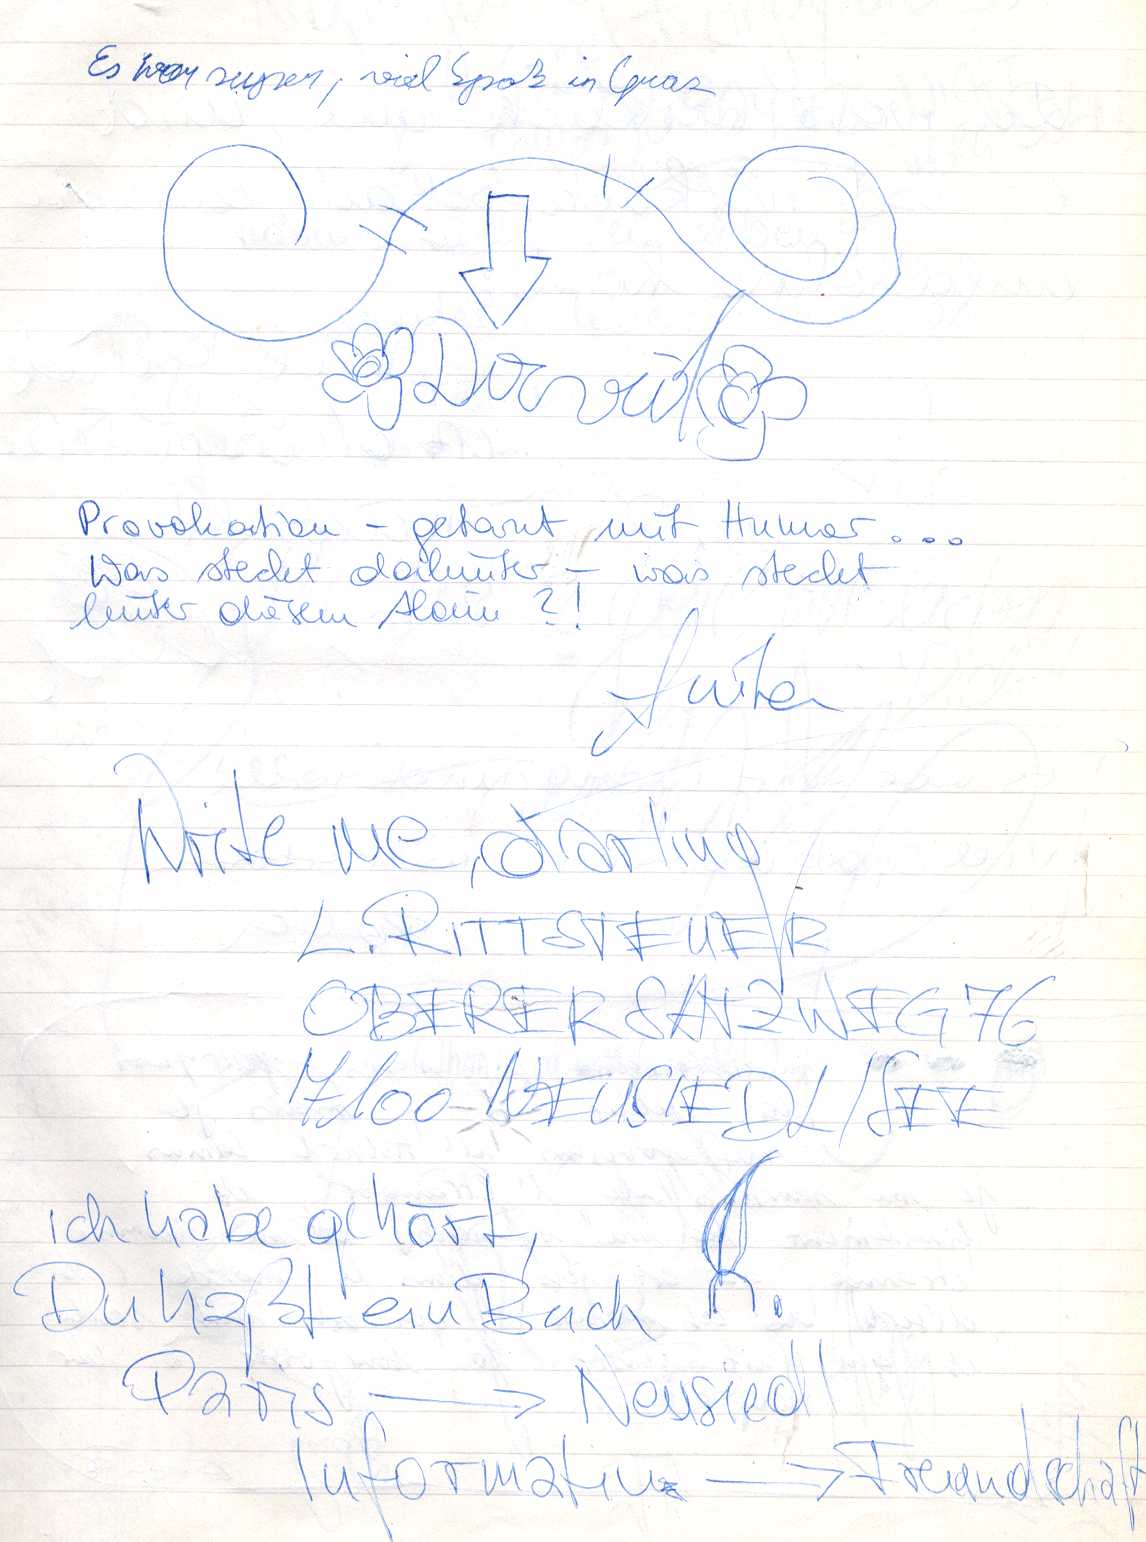 Es war super, viel Spaß in Graz
Provokation – getarnt mit Humor...
Was steckt dahinter – was steckt
hinter diesem Alain ?!
Anita
Write me, darling
L. RITTSTEUER
OBERER SATZWEG 76
7100-NEUSIEDL/SEE
ich habe gehört,
Du haßt ein Buch
Paris → Neusiedl
Information → Freundschaft